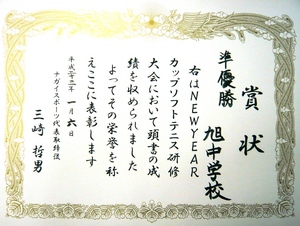 賞状
準優勝
旭中学校
右はNEWYEAR
カップソフトテニス研修
大会において頭書の成
績を収められました
よってその栄誉を称
えここに表彰します
平成二十二年一月六日
ナガイスポーツ代表取締役
三崎哲男